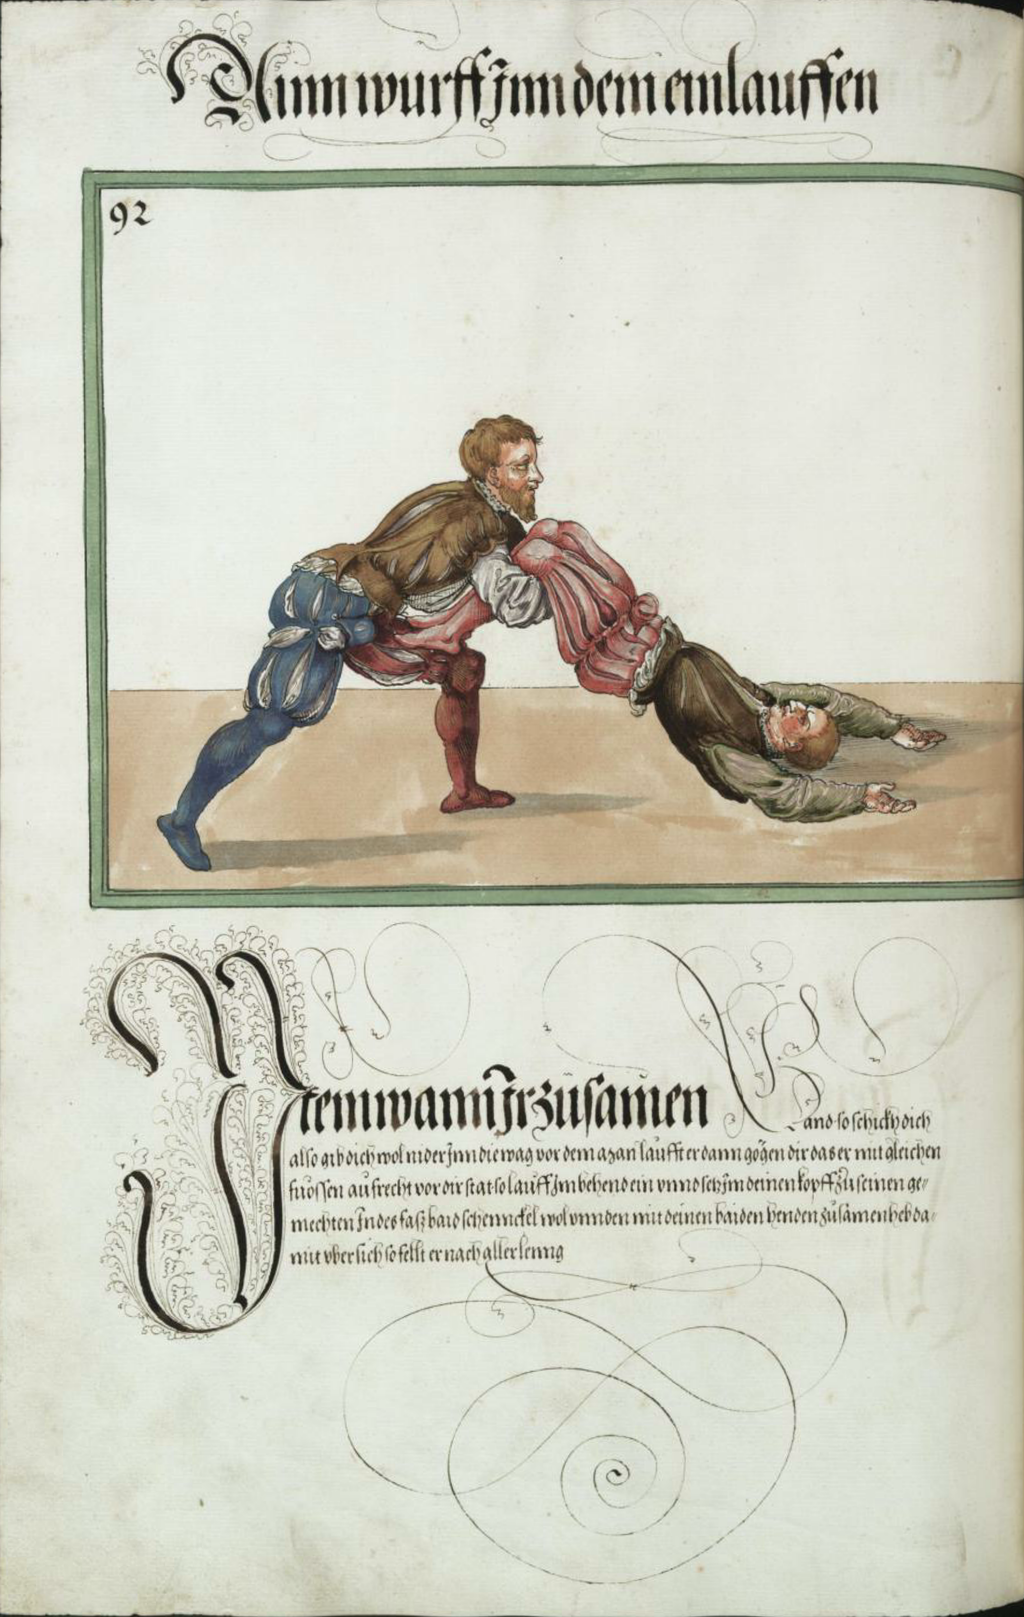 Ainn wurff Jnn dem einlauffen
92
Jtem wann Jr zusamen
Land so schickh dich
also gib dich wol nider Jnn die wag vor dem man laufft er dann gögen dir das er mit gleichen
fuossen aufrecht vor dir stat so lauff Jm behend ein vnnd setz Jm deinen kopff zu seinen ge„
mechten Jndes fass baid schennckel wol vnnden mit deinen baiden henden zusamen heb da„
mit vber sich so fellt er nach aller lenng